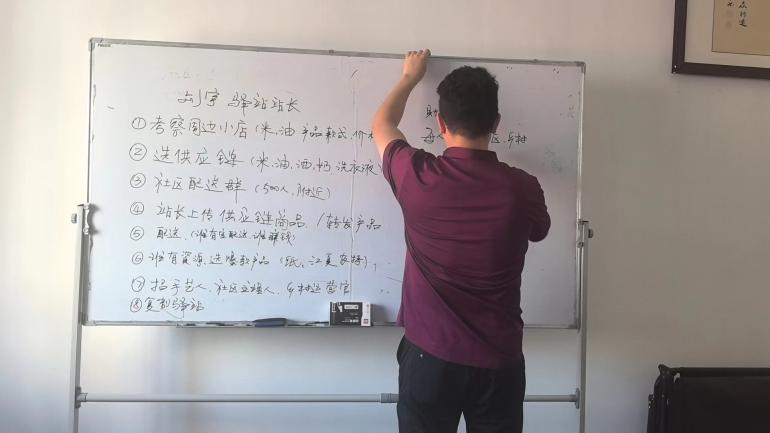 刘宇 驿站站长
①考察周边小店(米.油 产品款式.价
②选供应链(米.油.酒.奶.洗衣液)
③社区配送群(500人.附近)
④站长上传供应链商品./转发产品
⑤配送.(谁有空配送.谁赚钱)
⑥谁有资源.选爆款产品(纸.江夏农特).
⑦招手艺人.社区主理人.乡村运营官
⑧复制驿站
区.乡村